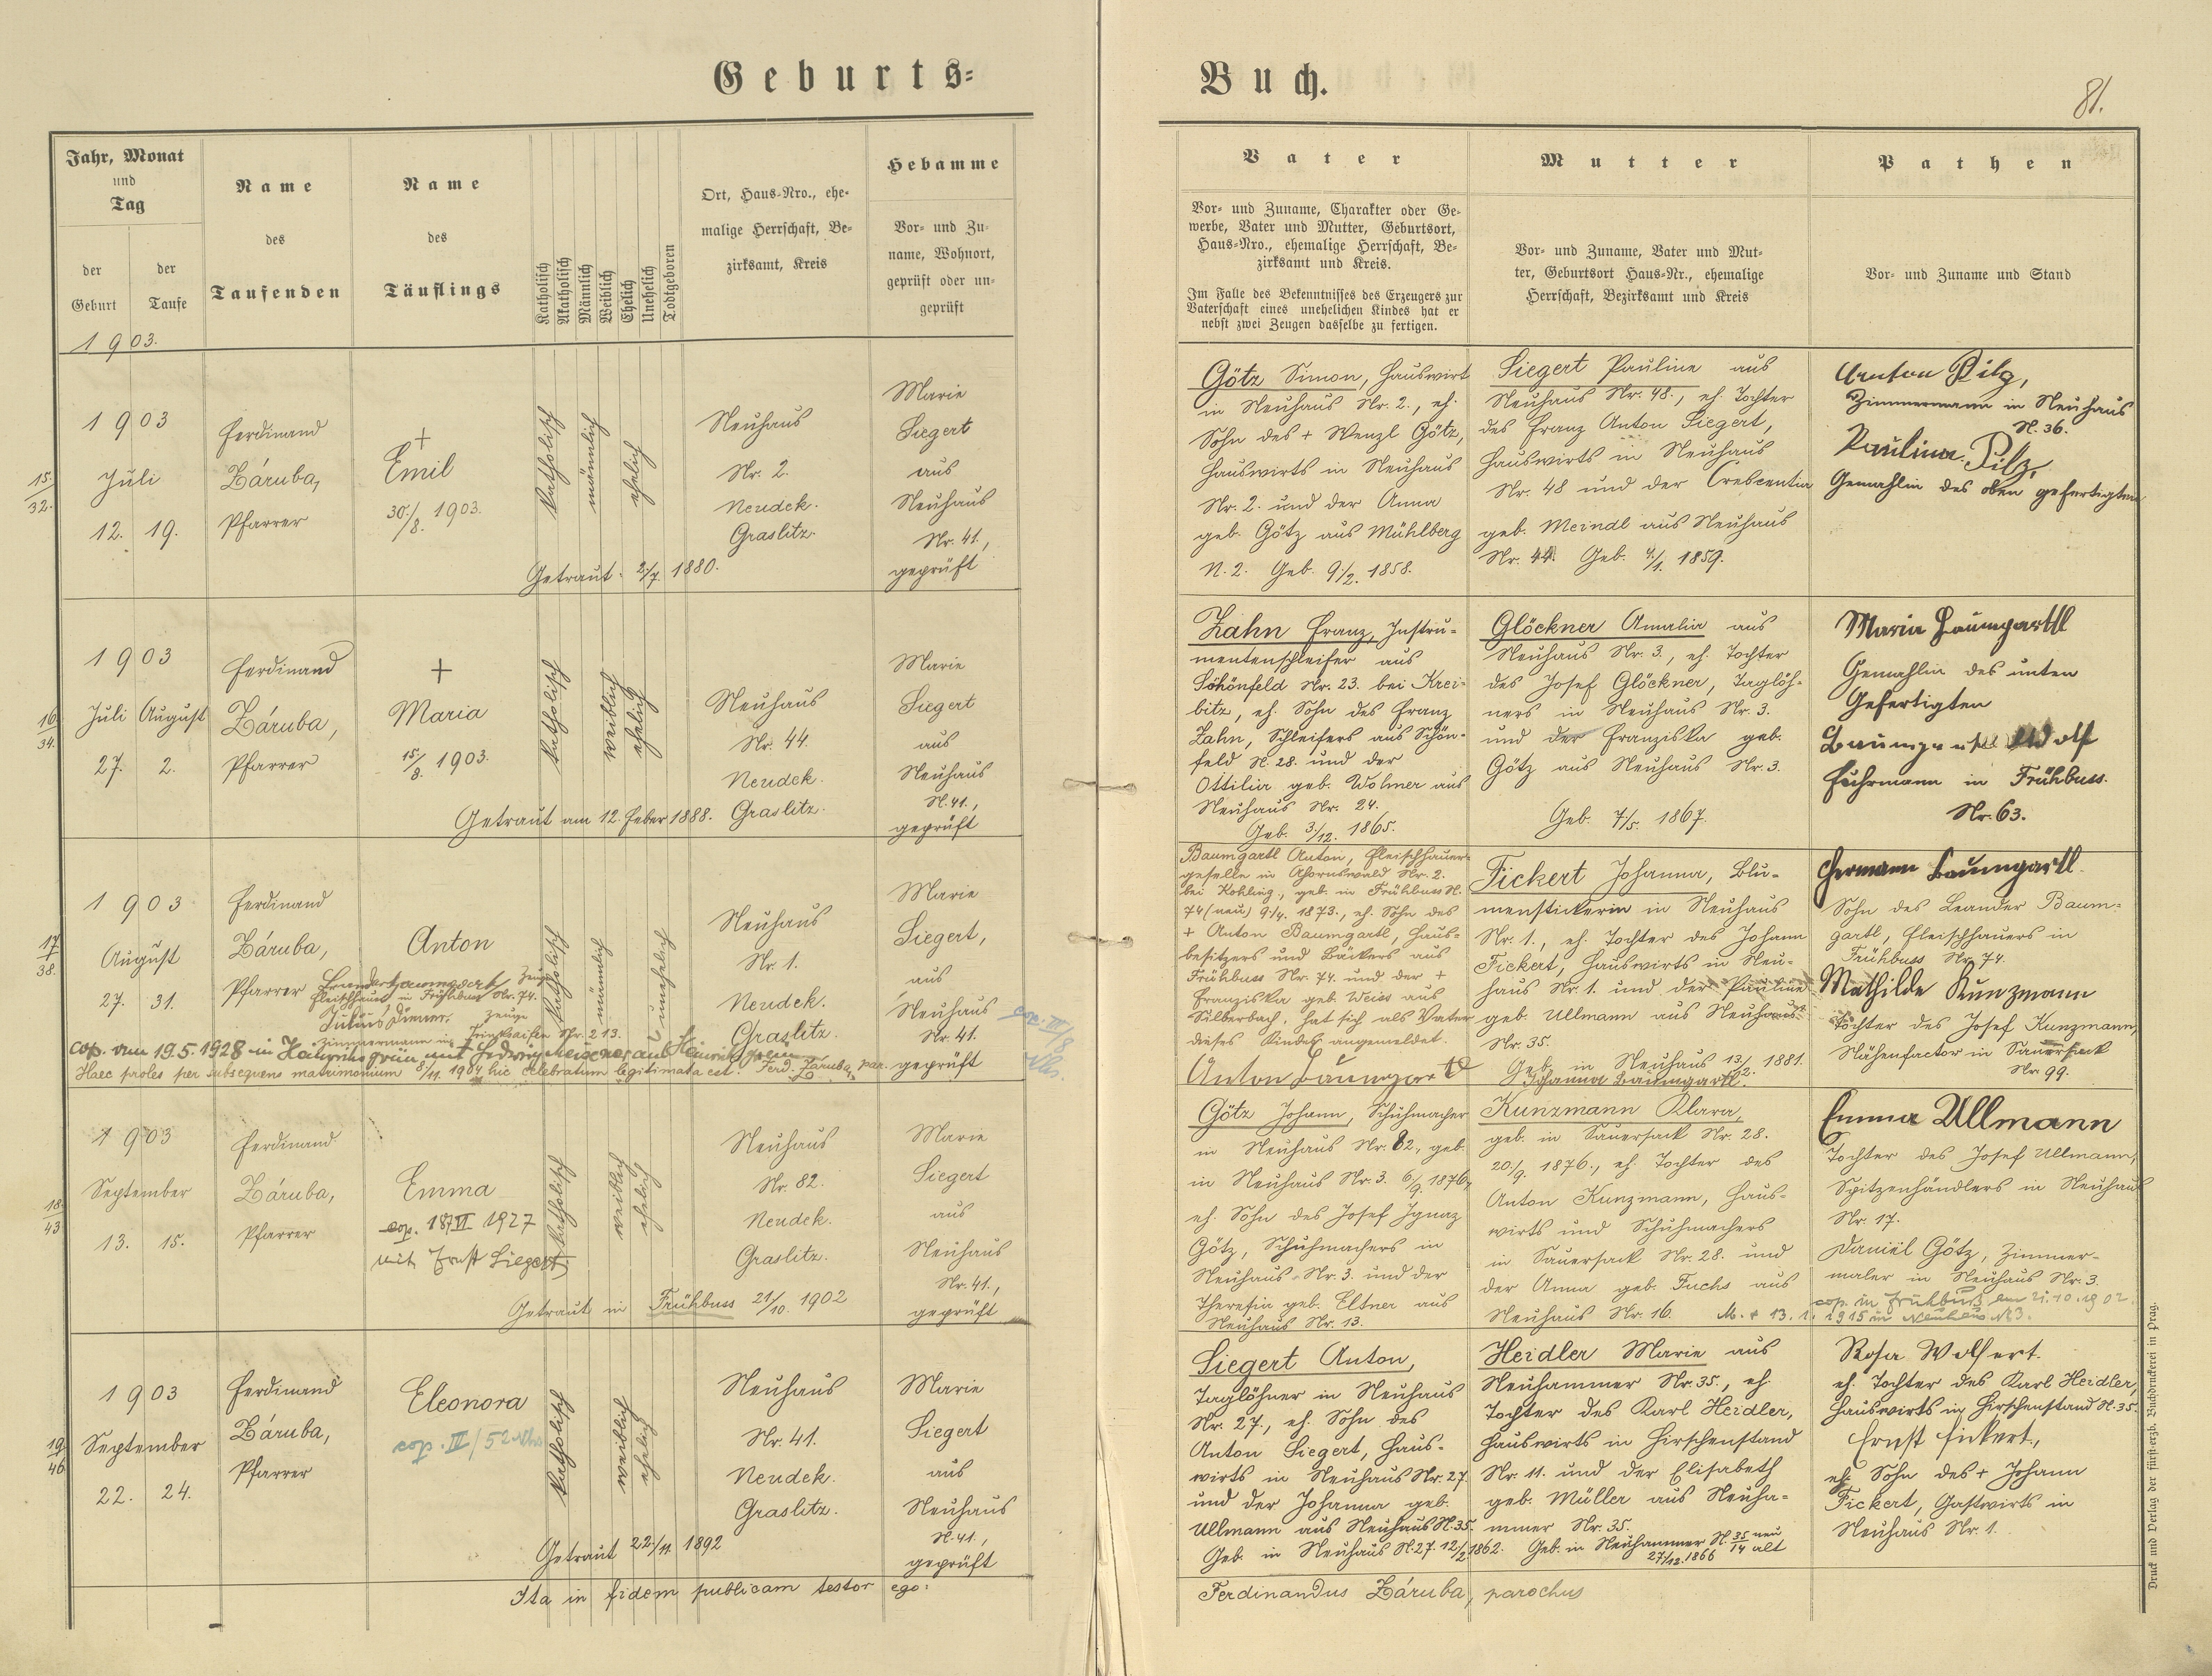 Geburts-
Buch.
81.
Jahr, Monat
und
Tag
der
Geburt
der
Taufe
Name
des
Taufenden
Name
des
Täuflings
Katholisch
Akatholisch
Männlich
Weiblich
Ehelich
Unehelich
Todtgeboren
Ort, Haus-Nro., ehe-
malige Herrschaft, Be-
zirksamt, Kreis
Hebamme
Vor- und Zu-
name, Wohnort,
geprüft oder un-
geprüft
Vater
Vor- und Zuname, Charakter oder Ge-
werbe, Vater und Mutter, Geburtsort,
Haus-Nro., ehemalige Herrschaft, Be-
zirksamt und Kreis.
Im Falle des Bekenntnisses des Erzeugers zur
Vaterschaft eines unehelichen Kindes hat er
nebst zwei Zeugen dasselbe zu fertigen.
Mutter
Vor- und Zuname, Vater und Mut-
ter, Geburtsort Haus-Nr., ehemalige
Herrschaft, Bezirksamt und Kreis
Pathen
Vor- und Zuname und Stand
1903.
15./32.
1903
Juli
12. 19.
Ferdinand
Záruba,
Pfarrer
+
Emil
30./8. 1903.
Katholisch
männlich
ehelich
Neuhaus
Nr. 2.
Neudek.
Graslitz.
Getraut: 2./7. 1880.
Marie
Siegert
aus
Neuhaus
Nr. 41.,
geprüft
Götz Simon, Hauswirt
in Neuhaus Nr. 2., eh.
Sohn des + Wenzl Götz,
Hauswirts in Neuhaus
Nr. 2. und der Anna
geb. Götz aus Mühlberg
N. 2. Geb. 9./2. 1858.
Siegert Pauline aus
Neuhaus Nr. 48., eh. Tochter
des Franz Anton Siegert,
Hauswirts in Neuhaus
Nr. 48 und der Crescentia
geb. Meindl aus Neuhaus
Nr. 44. Geb. 4/1. 1859.
Anton Pilz,
Zimmermann in Neuhaus
N. 36.
Paulina Pilz,
Gemahlin des oben gefertigten
16/34.
1903
Juli August
27. 2.
Ferdinand
Záruba,
Pfarrer
+
Maria
15/8. 1903.
Katholisch
weiblich
ehelich
Neuhaus
Nr. 44.
Neudek.
Graslitz.
Getraut am 12. Feber 1888.
Marie
Siegert
aus
Neuhaus
N. 41.,
geprüft
Zahn Franz, Instru-
mentenschleifer aus
Schönfeld Nr. 23. bei Krei-
bitz, eh. Sohn des Franz
Zahn, Schleifers aus Schön-
feld N. 28. und der
Ottilia geb. Wolmer aus
Neuhaus Nr. 24.
Geb. 3/12. 1865.
Glöckner Amalia aus
Neuhaus Nr. 3., eh. Tochter
des Josef Glöckner, Taglöh-
ners in Neuhaus Nr. 3.
und der Franziska geb.
Götz aus Neuhaus Nr. 3.
Geb. 7/5. 1867.
Maria Baumgartl
Gemahlin des unten
Gefertigten
Fuhrmann in Frühbuss.
Nr. 63.
17/38.
1903
August
27. 31.
Ferdinand
Záruba,
Pfarrer
Anton
Zeuge
Fleischhauer in Frühbuss Nr. 74.
Julius Diener. Zeuge
Zimmermann in Trinkseifen Nr. 213.
cop. am 19.5.1928 in
Haec proles per subsequens matrimonium 8/11. 1904 hic celebratum legitimata est. Ferd. Záruba, par.
Katholisch
männlich
unehelich
Neuhaus
Nr. 1.
Neudek.
Graslitz.
Marie
Siegert,
aus
Neuhaus
Nr. 41.
geprüft
Baumgartl Anton, Fleischhauer-
geselle in Ahornswald Nr. 2.
bei Kohling, geb. in Frühbuss N.
74 (neu) 9./4. 1873., eh. Sohn des
+ Anton Baumgartl, Haus-
besitzers und Bäckers aus
Frühbuss Nr. 74. und der +
Franziska geb. Weiss aus
Silberbach, hat sich als Vater
dieses Kindes angemeldet.
Anton Baumgartl
Fickert Johanna, Blu-
menstickerin in Neuhaus
Nr. 1., eh. Tochter des Johann
Fickert, Hauswirts in Neu-
haus Nr. 1. und der Pauline
geb. Ullmann aus Neuhaus
Nr. 35.
Geb. in Neuhaus 13./2. 1881.
Johanna Baumgartl.
Hermann Baumgartl.
Sohn des Leander Baum-
gartl, Fleischhauers in
Frühbuss Nr. 74.
Mathilde Kunzmann
Tochter des Josef Kunzmann,
Nähenfactor in Sauersack
Nr. 99.
18/43
1903
September
13. 15.
Ferdinand
Záruba,
Pfarrer
Emma
cop. 18 VI 1927
mit Ernst Siegert
Katholisch
weiblich
ehelich
Neuhaus
Nr. 82.
Neudek.
Graslitz.
Getraut in Frühbuss 21/10. 1902
Marie
Siegert
aus
Neuhaus
Nr. 41.,
geprüft
Götz Johann, Schuhmacher
in Neuhaus Nr. 82., geb.
in Neuhaus Nr. 3. 6/9. 1876,
eh. Sohn des Josef Ignaz
Götz, Schuhmachers in
Neuhaus Nr. 3. und der
Theresia geb. Eltner aus
Neuhaus Nr. 13.
Kunzmann Klara,
geb. in Sauersack Nr. 28.
20./9. 1876., eh. Tochter des
Anton Kunzmann, Haus-
wirts und Schuhmachers
in Sauersack Nr. 28. und
der Anna geb. Fuchs aus
Neuhaus Nr. 16.
Emma Ullmann
Tochter des Josef Ullmann,
Spitzenhändlers in Neuhaus
Nr. 17.
Daniel Götz, Zimmer-
maler in Neuhaus Nr. 3.
cop. in Frühbuß am 21.10.1902.
M. + 13. 1. 1915 in Neuhaus N 3.
19/46
1903
September
22. 24.
Ferdinand
Záruba,
Pfarrer
Eleonora
Katholisch
weiblich
ehelich
Neuhaus
Nr. 41.
Neudek.
Graslitz.
Getraut 22./11. 1892
Marie
Siegert
aus
Neuhaus
N. 41.,
geprüft
Siegert Anton,
Taglöhner in Neuhaus
Nr. 27., eh. Sohn des
Anton Siegert, Haus-
wirts in Neuhaus Nr. 27
und der Johanna geb.
Ullmann aus Neuhaus N. 35.
Geb. in Neuhaus N. 27. 12/2 1862.
Heidler Marie aus
Neuhammer Nr. 35., eh.
Tochter des Karl Heidler,
Hauswirts in Hirschenstand
Nr. 11. und der Elisabeth
geb. Müller aus Neuha-
mmer Nr. 35.
Geb. in Neuhammer N. 35 neu/14 alt
27/12. 1866
Rosa Wolfert.
eh. Tochter des Karl Heidler,
Hauswirts in Hirschenstand N. 35.
Ernst Fickert,
eh. Sohn des + Johann
Fickert, Gastwirts in
Neuhaus Nr. 1.
Ita in fidem publicam testor ego:
Ferdinandus Záruba, parochus
Druck und Verlag der fürst-erzb. Buchdruckerei in Prag.